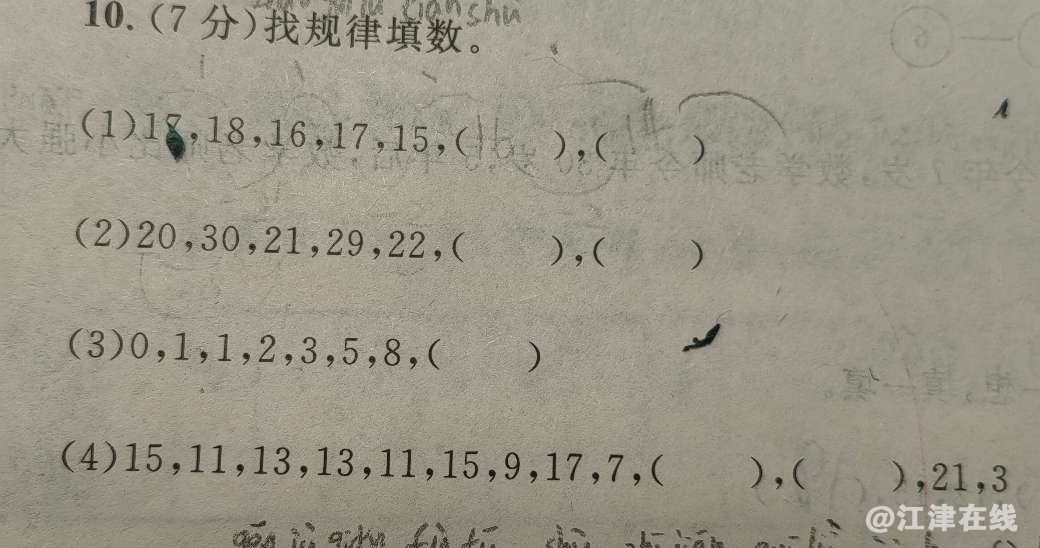 10.(7 分)找规律填数。
(1)17,18,16,17,15,(16),(14)
(2)20,30,21,29,22,( ),( )
(3)0,1,1,2,3,5,8,( )
(4)15,11,13,13,11,15,9,17,7,( ),( ),21,3
@江津在线